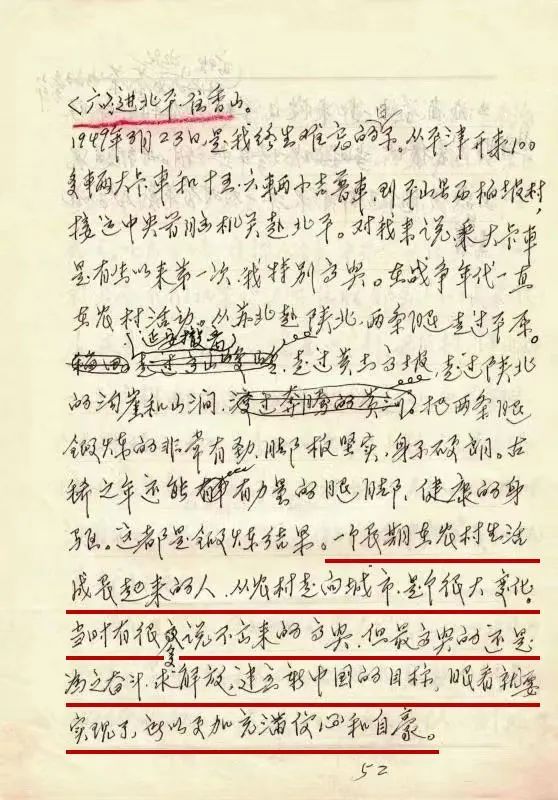 〈六〉进北平住香山。
1949年3月23日是我终生难忘的日。从平津开来100
多辆大卡车和十五、六辆小吉普车，到平山县西柏坡村，
接送中央首脑机关赴北平。对我来说乘大卡车
是有生以来第一次，我特别高兴。在战争年代一直
在农村活动。从苏北赴陕北，两条腿走过平原。
走过高山峻岭，走过黄土高坡，走过陕北
的沟崖和山涧，渡过奔腾的黄河，把两条腿
锻炼的非常有劲，脚板坚实，身子硬朗。古
稀之年还能有力量的腿脚，健康的身
躯。这都是锻炼结果。一个长期在农村生活
成长起来的人，从农村走向城市，是个很大变化。
当时有很多说不出来的高兴，但最高兴的还是
为之奋斗、求解放，建立新中国的目标，眼看就要
实现了，所以更加充满信心和自豪。
52